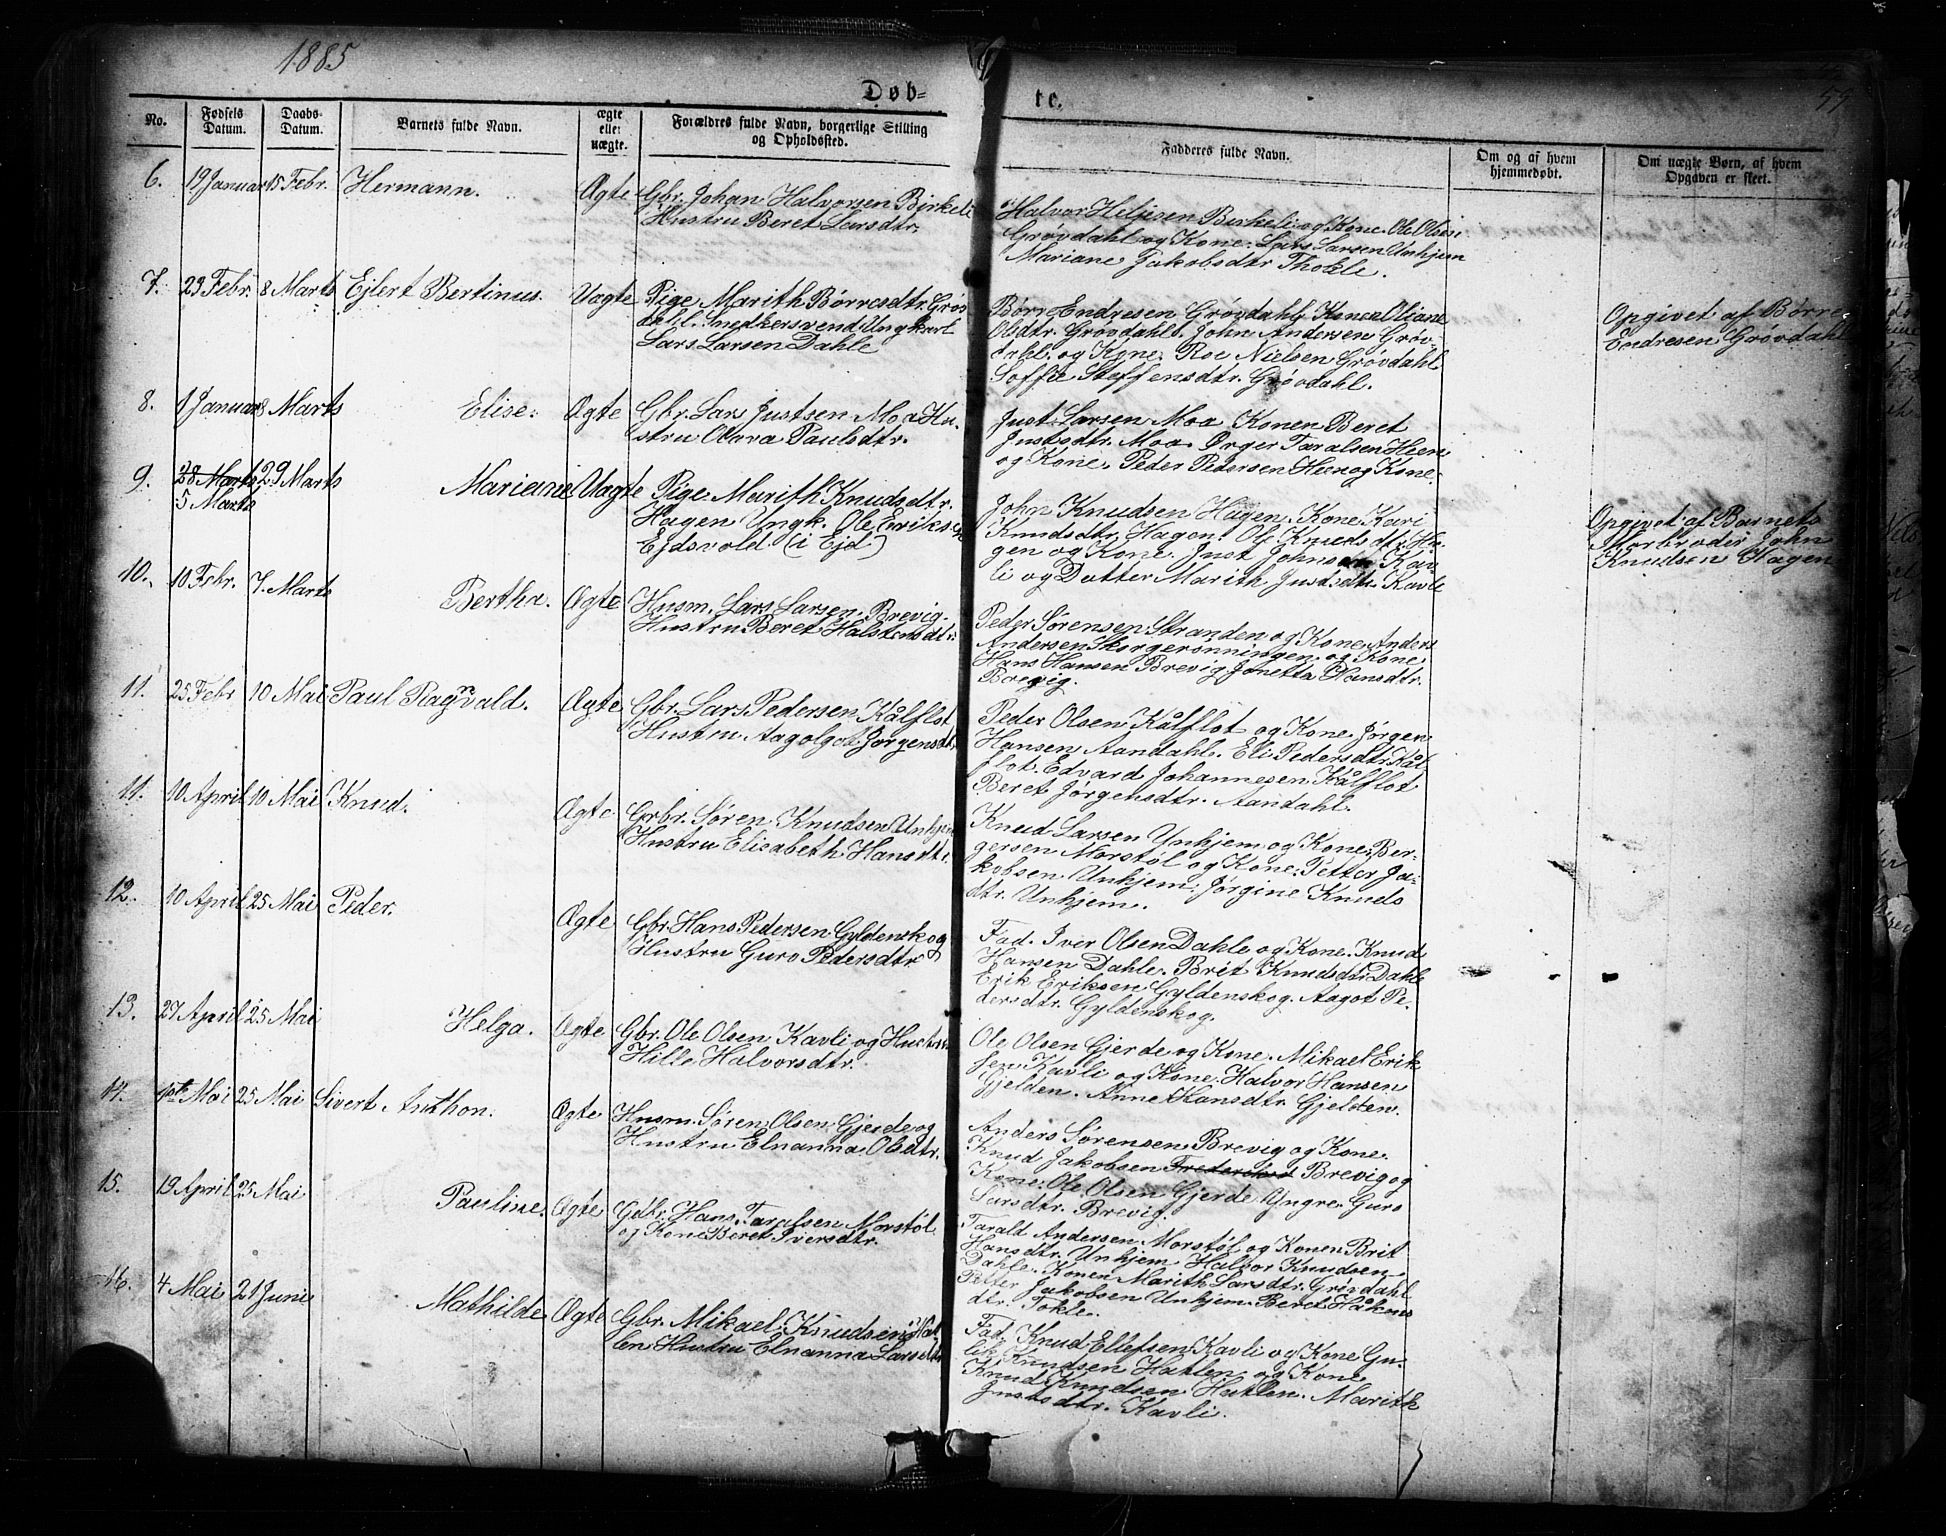 1885
59
Døb-
te.
No.
Fødsels Datum.
Daabs-Datum.
Barnets fulde Navn.
ægte eller uægte.
Forældres fulde Navn, borgerlige Stilling og Opholdssted.
Fadderes fulde Navn.
Om og af hvem hjemmedøbt.
Om uægte Børn, af hvem Opgaven er skeet.
6. 19 Januar 15 Febr. Hermann. Ægte
Gbr. Johan Halvorsen Birkeli
Hustru Beret Larsdtr.
Halvor Birkeli og Kone. Ole Olsen
Grøvdahl og Kone. Lars Larsen Unhjem
Mariane Jakobsdtr Thokle.
7. 23 Febr. 8 Marts Ejlert Bertinus. Uægte
Pige Marith Børresdtr. Grøv
dahl. Snedkersvend, Ungkarl
Lars Larsen Dahle
Børre Endresen Grøvdahl, Konen Oliane
Olsdtr. Grøvdahl. John Andersen Grøv-
dahl og Kone. Roe Nielsen Grøvdahl
Soffie Steffensdtr. Grøvdahl.
Opgivet af Børre
Endresen Grøvdahl
8. 1 Januar 8 Marts Elise. Ægte
Gbr. Lars Justsen Moa Hu-
stru Olava Paulsdtr.
Just Larsen Moa Konen Beret
Justsdtr. Moa. Ørger Taralsen Heen
og Kone. Peder Pedersen Heen og Kone.
9. 28 Marts 29 Marts Mariane Uægte
5 Marts
Pige Marith Knudsdtr.
Hagen Ungk. Ole Eriks
Ejdsvold (i Ejd)
John Knudsen Hagen. Kone Kari
Knudsdtr. Hagen. Ole Knudsdtr. Ha-
gen og Kone. Just Johnsen Kav-
li og Datter Marith Justsdtr. Kavli
Opgivet af Barnets
Morbroder John
Knudsen Hagen
10. 10 Febr. 7. Marts Bertha. Ægte
Husm. Lars Larsen Brevig.
Hustru Beret Halstensdtr.
Peder Sørensen Stranden og Kone. Anders
Andersen Skorgerønningen og Kone.
Hans Hansen Brevig Jonetta Hansdtr.
Brevig.
11. 25 Febr 10 Mai Paul Ragnvald. Ægte
Gbr. Lars Pedersen Kålflot
Hustru Aagolgot Jørgensdtr.
Peder Olsen Kålflot og Kone. Jørgen
Hansen Aandahl. Eli Pedersdtr. Kål
flot. Edvard Johannesen Kålflot
Beret Jørgensdtr. Aandahl.
11. 10 April 10 Mai Knud. Ægte
Grbr. Søren Knudsen Unhjem
Hustru Elisabeth Hansdtr.
Knud Larsen Unhjem og Kone. Ber-
gersen Morstøl og Kone. Petter Ja-
kobsen Unhjem. Jørgine Knuds
dtr. Unhjem.
12. 10 April 25 Mai Peder. Ægte
Gbr. Hans Pedersen Gyldenskog
Hustru Guro Pedersdtr
Fad. Iver Olsen Dahle og Kone. Knud
Hansen Dahle. Brit Knudsdtr. Dahle
Erik Eriksen Gyldenskog. Aagot Pe-
dersdtr. Gyldenskog.
13. 27 April 25 Mai Helga. Ægte
Gbr. Ole Olsen Kavli og Hustru
Hille Halvorsdtr.
Ole Olsen Gjerde og Kone. Mikael Erik
sen Kavli og Kone. Halvor Hansen
Gjelden. Anne Hansdtr. Gjelden.
14. 1ste Mai 25 Mai Sivert Anthon. Ægte
Husm. Søren Olsen Gjerde og
Hustru Elnanna Olsdtr.
Anders Sørensen Brevig og Kone.
Knud Jakobsen Brevig og
Kone. Ole Olsen Gjerde Yngre. Guro
Larsdtr. Brevig.
15. 19 April 25 Mai Pauline. Ægte
Gdbr. Hans Taralsen Morstøl
og Kone Beret Iversdtr.
Tarald Andersen Morstøl og Konen Brit
Hansdtr. Unhjem Halvor Knudsen
Dahle. Konen Marith Larsdtr. Grøvdahl
Petter Jakobsen Unhjem. Beret Håkens
dtr. Tokle.
16. 4 Mai 21 Juni Mathilde Ægte
Gbr. Mikael Knudsen Hat
len Hustru Elnanna Larsdtr
Fad. Knud Ellefsen Kavli og Kone Gu-
lik Knudsen Hatlen og Kone
Knud Knudsen Hatlen. Marith
Justsdtr. Kavli.